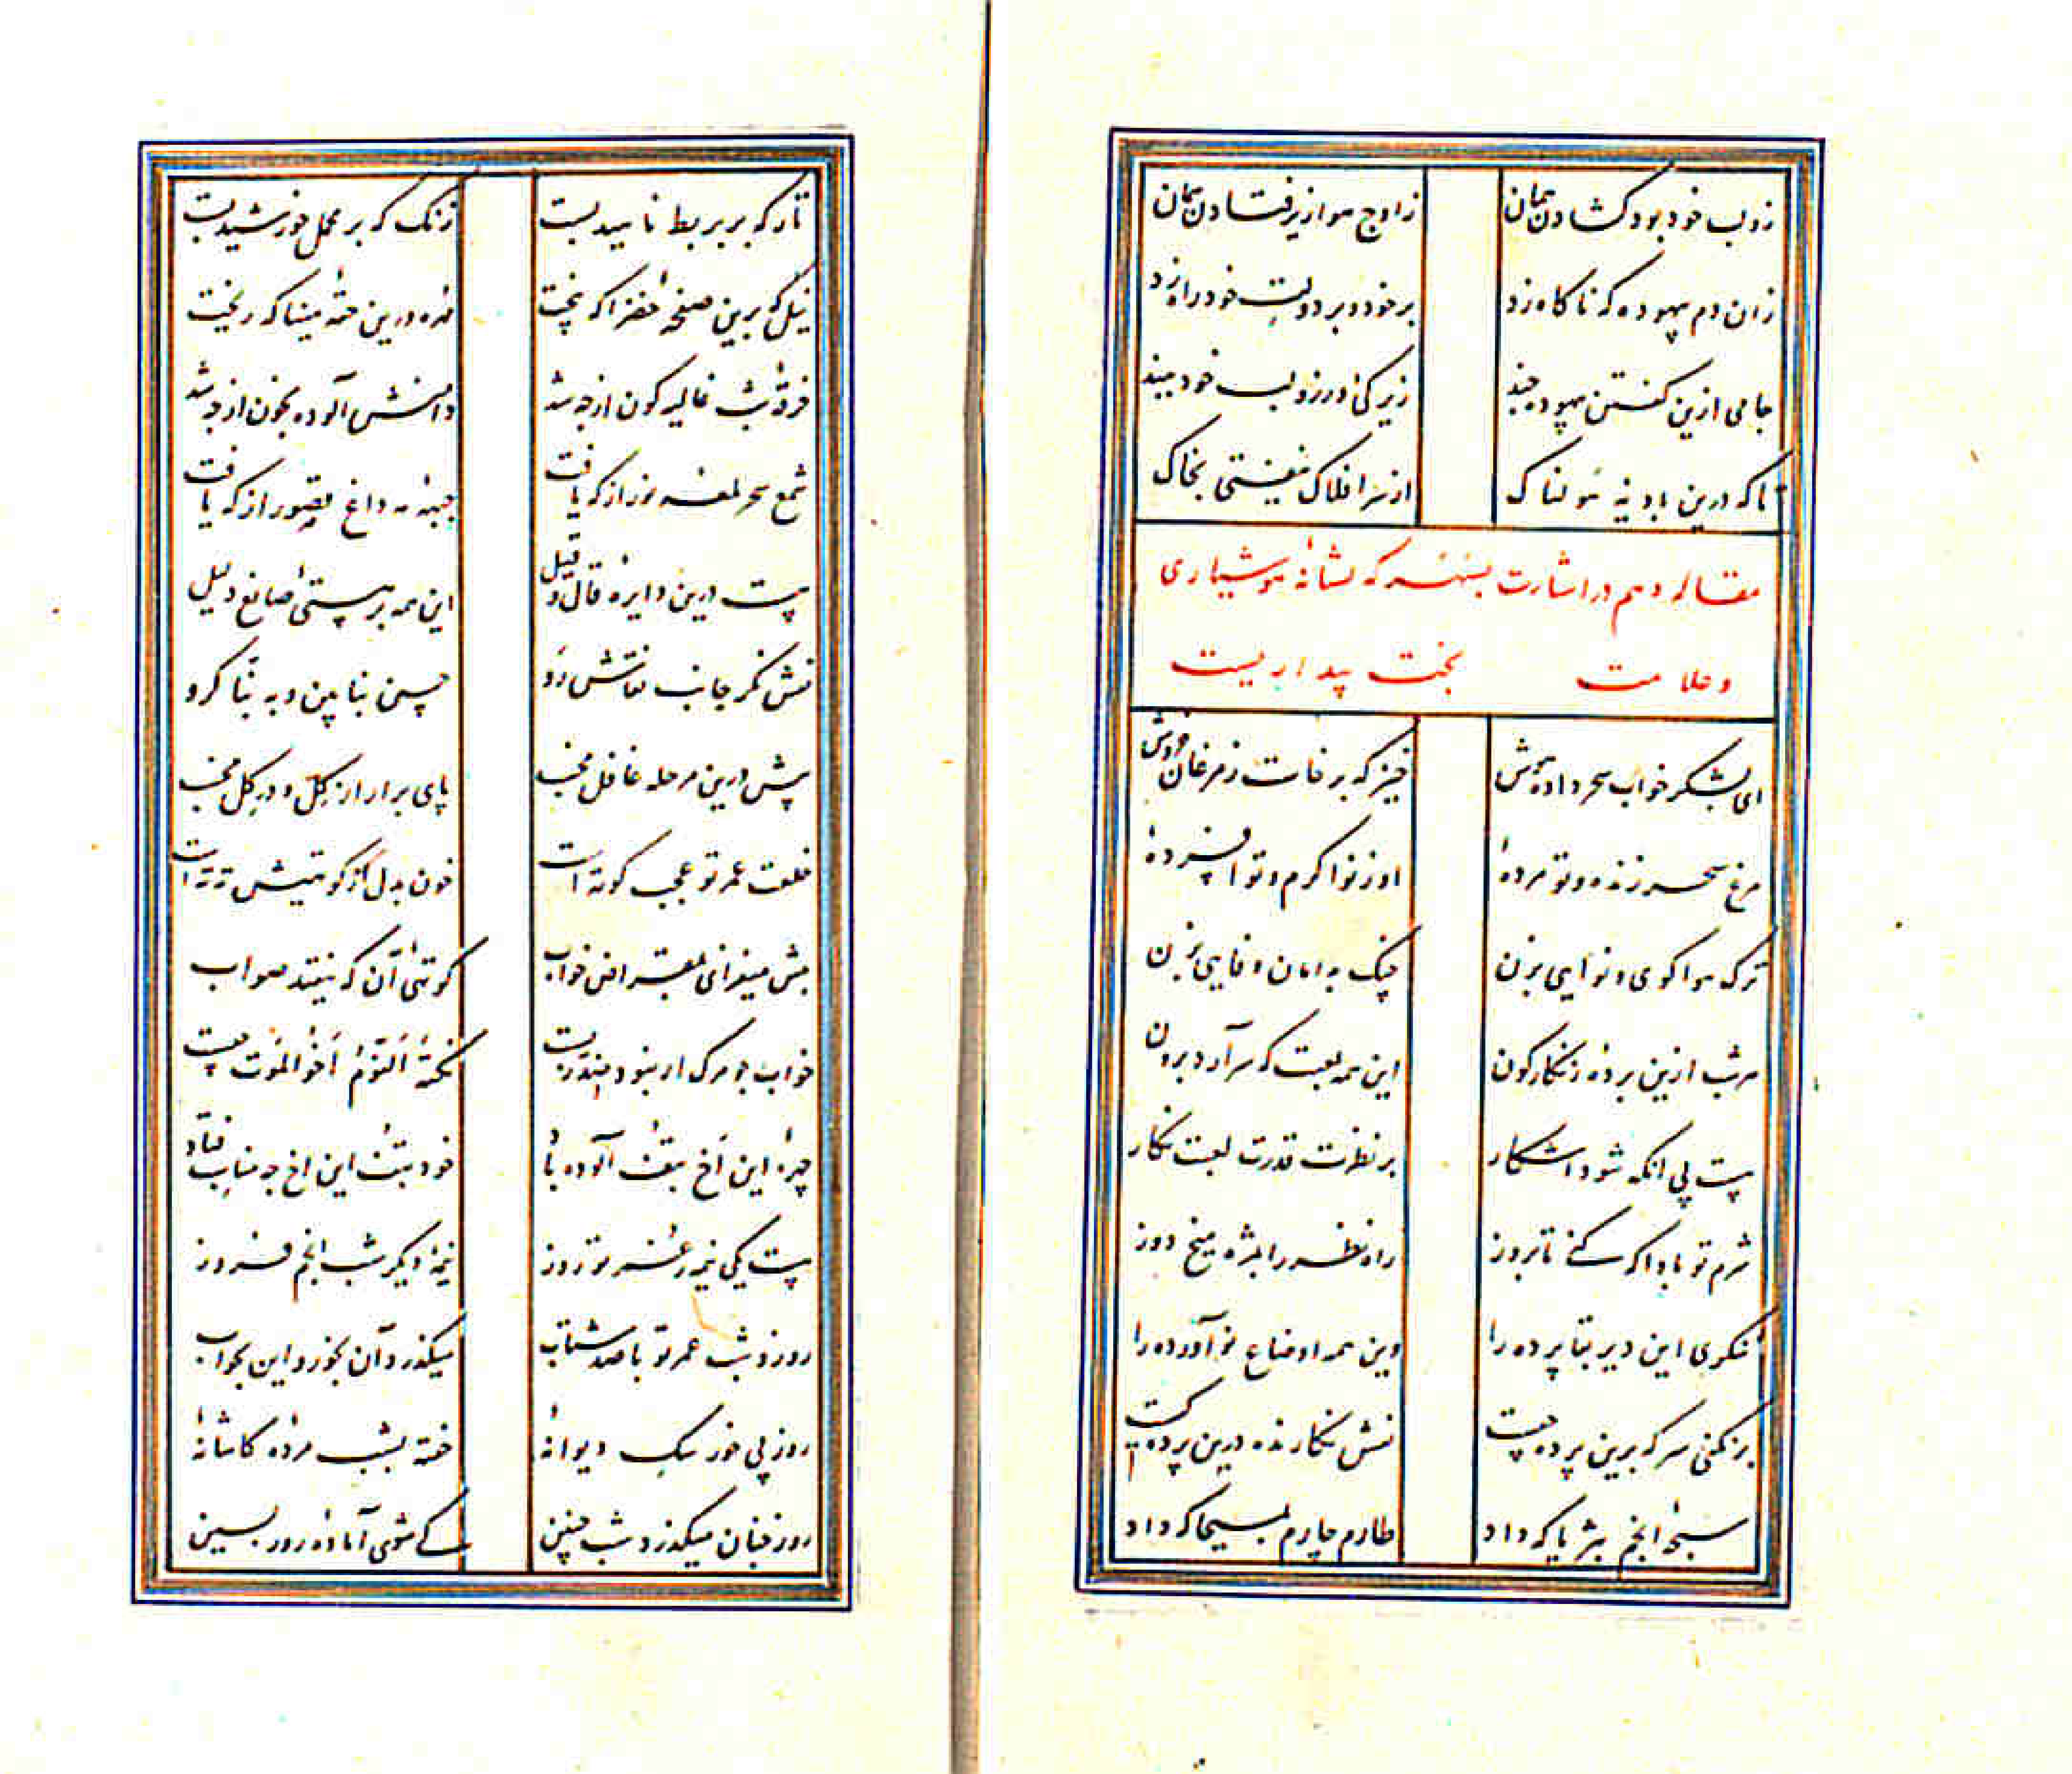 زو لب خود بود گشادن همان زاوج هوا زیر فتادن همان
زان دم بیهوده که ناگاه زد بر خود و بر دولت خود راه زد
جامی ازین گفتن بیهوده چند زیرکی ورز و لب خود ببند
تا که درین بادیه هولناک از سر افلاک نیفتی بخاک
مقاله دهم در اشارت بسهر که نشانه هوشیاری
و علامت بخت بیداریست
ای بشکر خواب سحر داده هوش خیز که برخاست ز مرغان خروش
مرغ سحر زنده و تو مرده او ز نوا گرم و تو افسرده
ترک هوا گوی و نوایی بزن چنگ بدامان وفایی بزن
هر شب ازین پرده زنگارگون این همه لعبت که سر آرد برون
نیست پی آنکه شود آشکار بر نظرت قدرت لعبت نگار
شرم تو بادا که کنی تا بروز راه نظر را بمژه میخ دوز
ننگری این دیر بتا پرده را وین همه اوضاع نو آورده را
بر نکنی سر که برین پرده چیست نقش نگارنده درین پرده کیست
سبحه انجم بثریا که داد طارم چارم بمسیحا که داد
تار که بر بربط ناهید بست زنگ که بر محمل خورشید بست
نیل که برین صفحه خضرا که بیخت مهره درین حقه مینا که ریخت
خرقه شب غالیه گون از چه شد دامنش آلوده بخون از چه شد
شمع سحر لمعه نور از که یافت جبهه مه داغ قصور از که یافت
نیست درین دایره قال و قیل این همه بر هستی صانع دلیل
نقش نگر جانب نقاش رو حسن بنا بین و به بنا گرو
بیش درین مرحله غافل مخسب پای برآر از گل و در گل مخسب
خلعت عمر تو عجب کوته است خون بدل از کوتهیش ته ته است
بیش میفزای بمقراض خواب کوتهی آن که نیفتد صواب
خواب به مرگ ار نبود چند نیست نکته النوم اخو الموت چیست
چهره این اخ بتف آلوده باد خود بتف این اخ چه مناسب فتاد
نیست یکی نیمه ز عمر تو روز نیمه دیگر شب انجم فروز
روز و شب عمر تو با صد شتاب میگذرد آن بخور و این بخواب
روز پی خور سگ دیوانه خفته بشب مرده کاشانه
روز چنان میگذرد شب چنین کی شوی آماده روز پسین